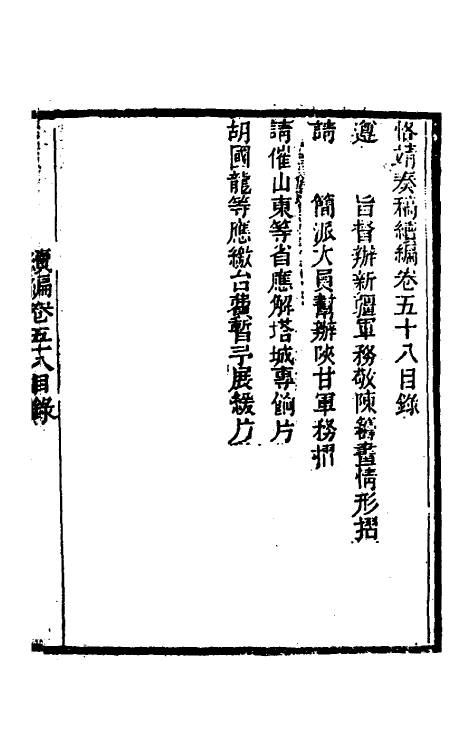 恪靖奏稿續編卷五十八目錄
遵 旨督辦新疆軍務敬陳籌畫情形摺
請 簡派大員幫辦陝甘軍務摺
請催山東等省應解塔城專餉片
胡國龍等應繳台費暫予展緩片
續編卷五十八目錄